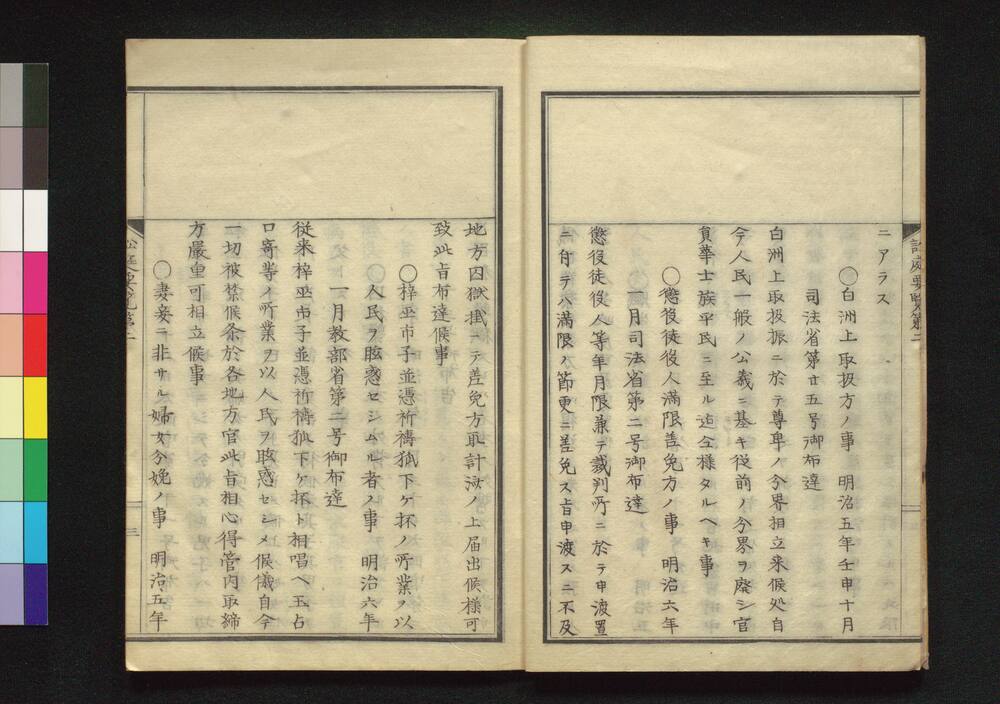 ニアラス
〇白洲上取扱方ノ事 明治五年壬申十月
司法省第廿五号御布達
白洲上取扱振ニ於テ尊卑ノ分界相立来候処自
今人民一般ノ公義ニ基キ従前ノ分界ヲ廃シ官
員華士族平民ニ至ル迄仝様タルヘキ事
〇懲役徒役人満限差免方ノ事 明治六年
一月司法省第二号御布達
懲役徒役人等年月限兼テ裁判所ニ於テ申渡置
ニ付テハ満限ノ節更ニ差免ス旨申渡スニ不及
地方囚獄掛ニテ差免方取計済ノ上届出候様可
致此旨布達候事
〇梓巫市子並憑祈祷狐下ケ抔ノ所業ヲ以
人民ヲ眩惑セシムル者ノ事 明治六年
一月教部省第二号御布達
従来梓巫市子並憑祈祷狐下ケ抔ト相唱ヘ玉占
口寄等ノ所業ヲ以人民ヲ眩惑セシメ候儀自今
一切被禁候条於各地方官此旨相心得管内取締
方厳重可相立候事
〇妻妾ニ非サル婦女分娩ノ事 明治五年
三